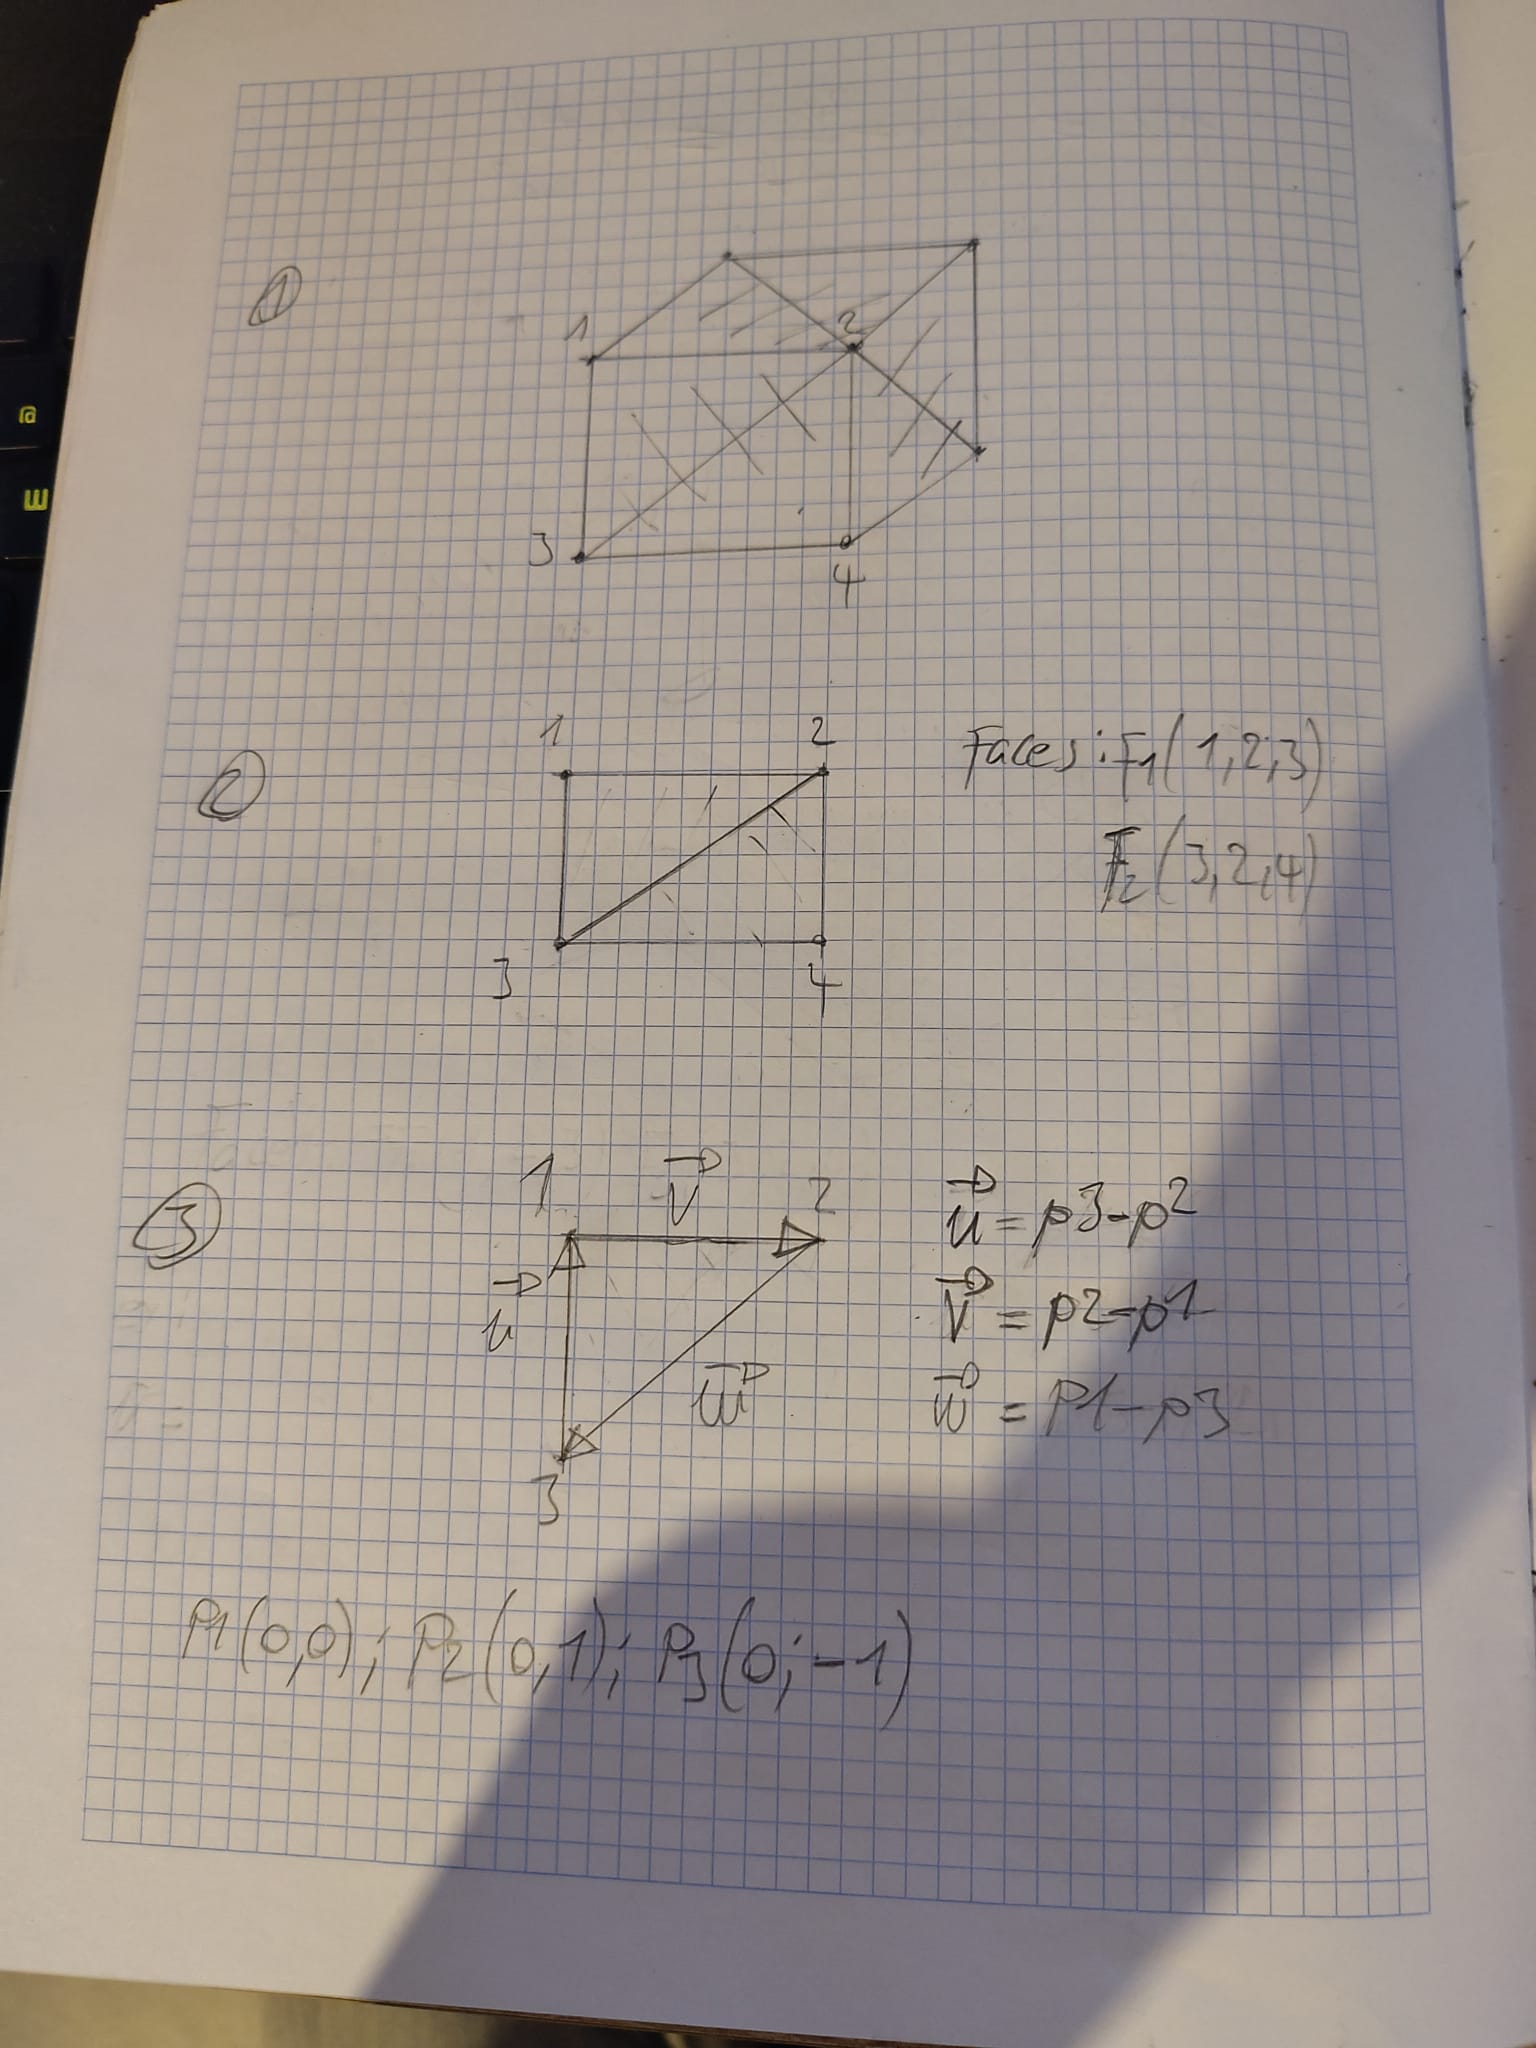 @
W
①
1
2
3
4
②
1
2
3
4
Faces: F1(1,2,3)
F2(3,2,4)
③
1
v⃗
2
u⃗
w⃗
3
u⃗ = p3-p2
v⃗ = p2-p1
w⃗ = p1-p3
P1(0,0); P2(0,1); P3(0;-1)